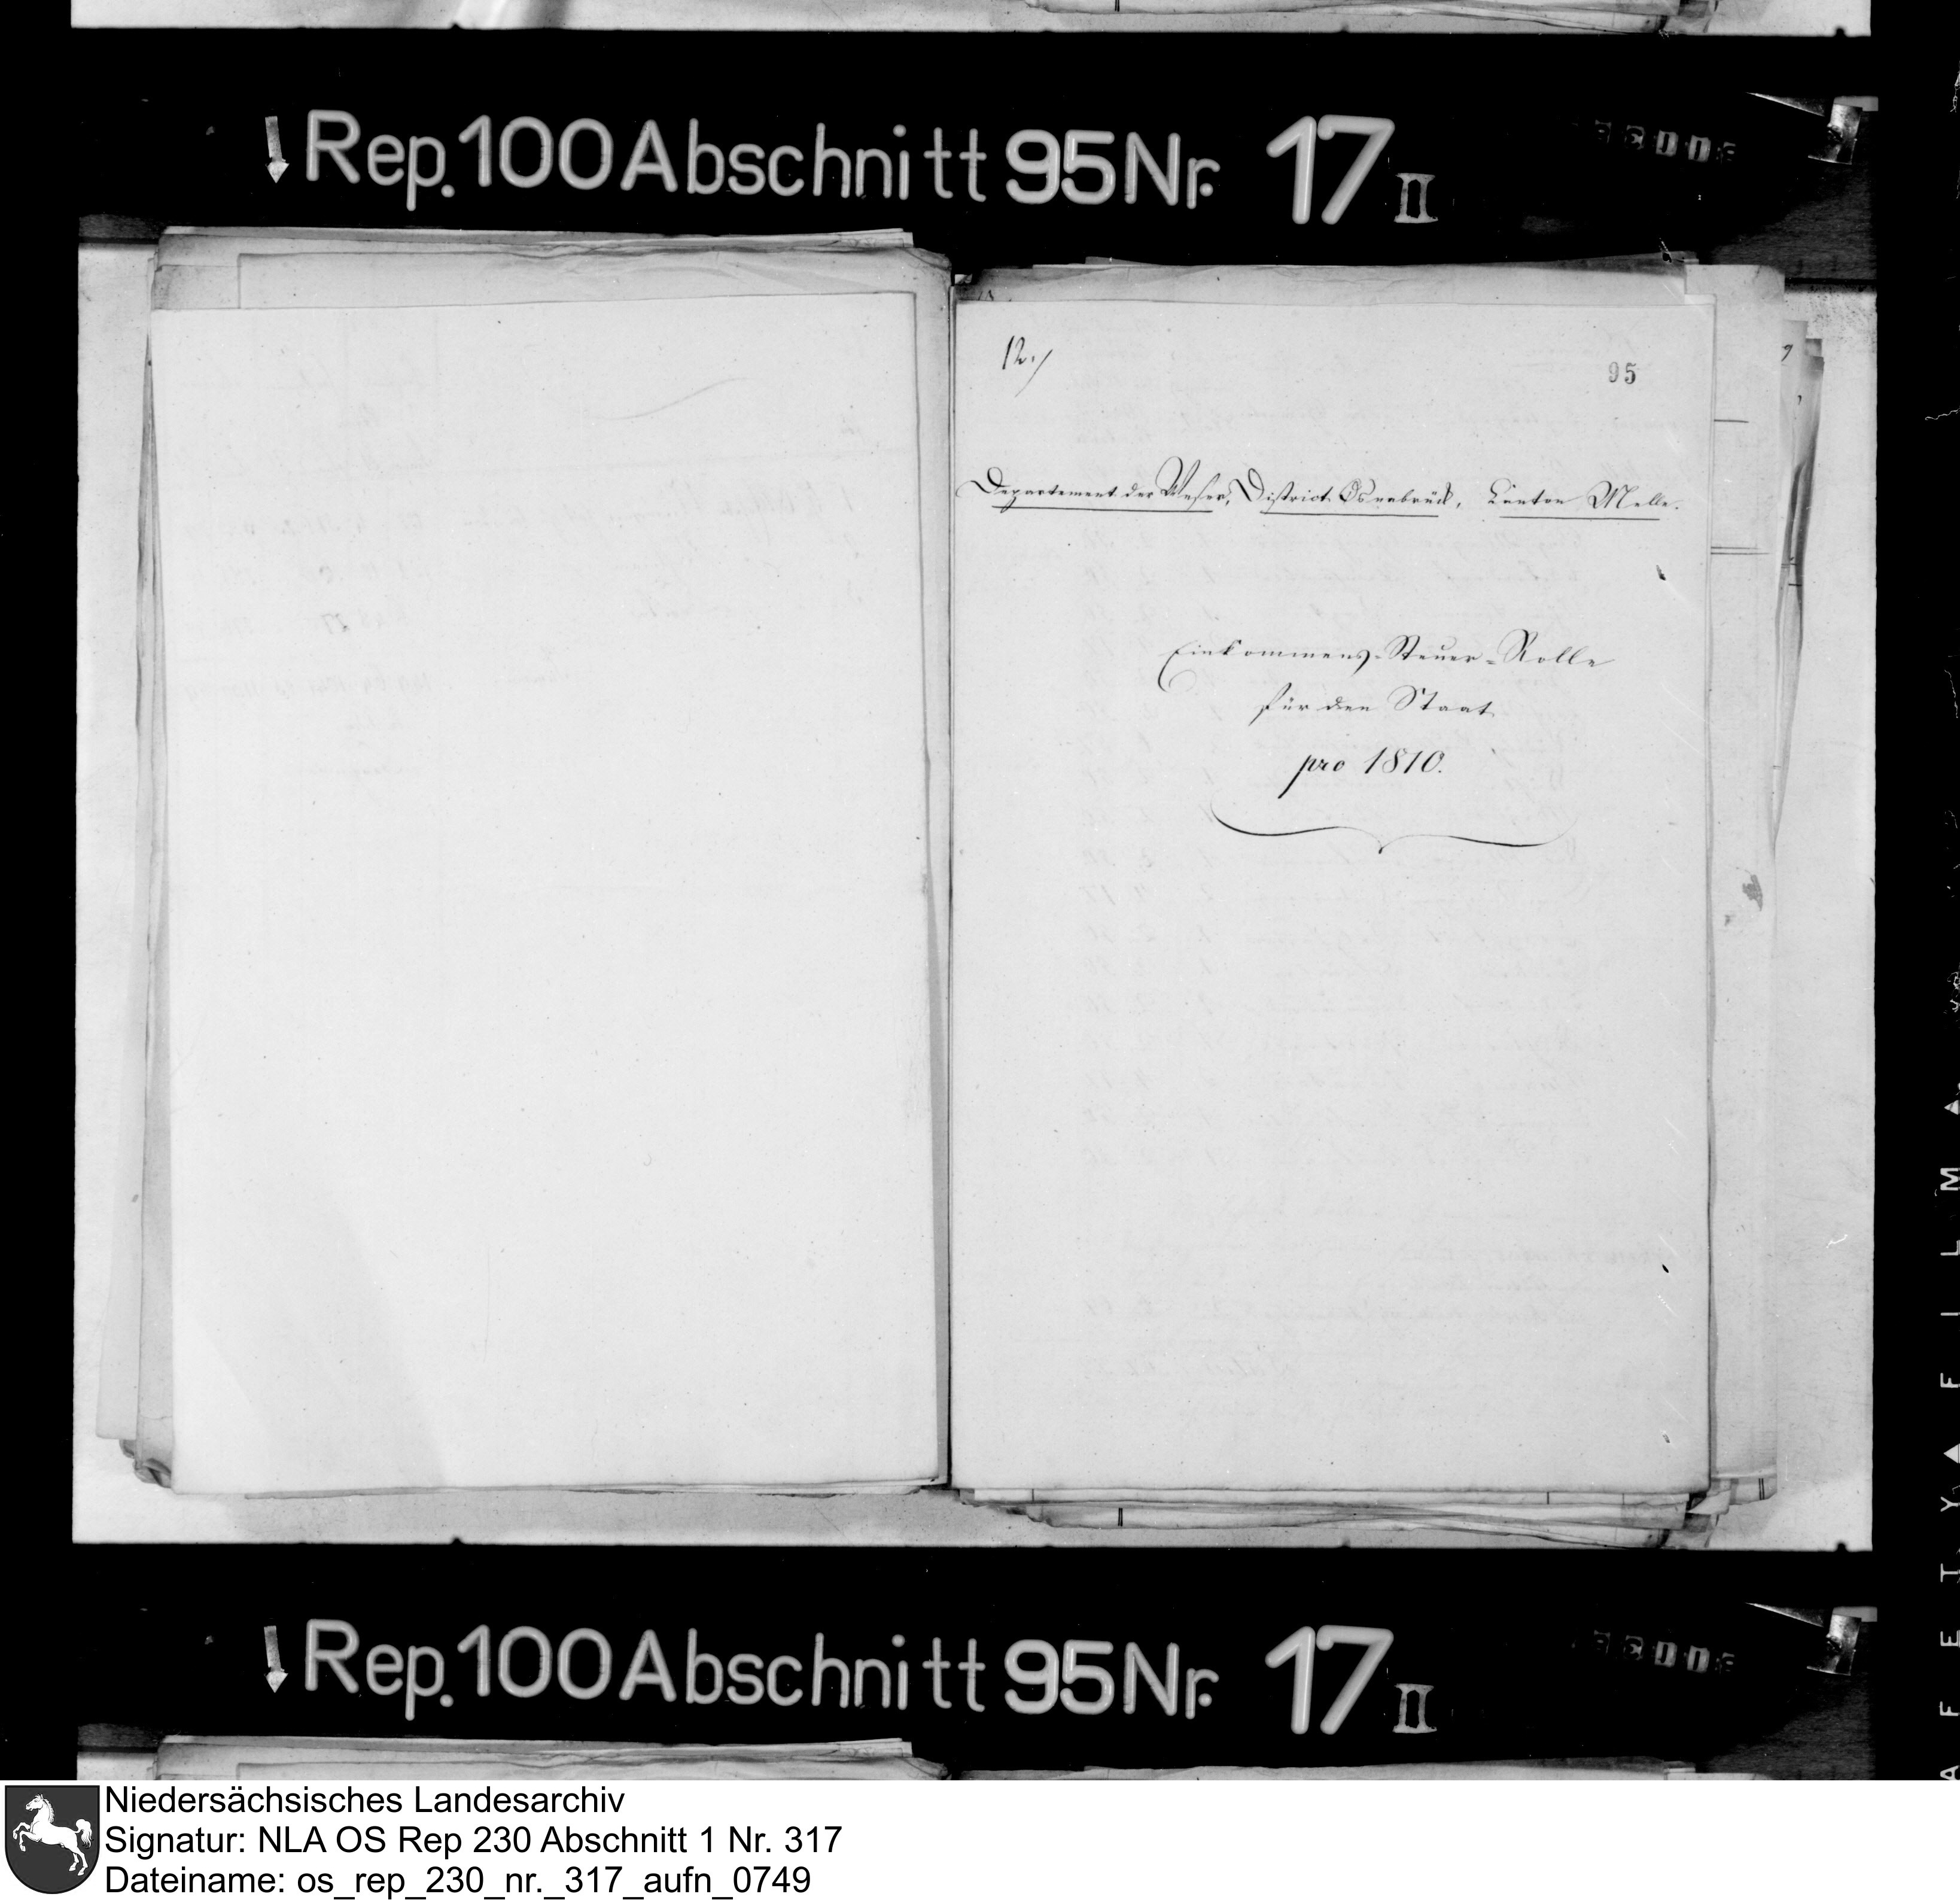 Rep. 100 Abschnitt 95 Nr. 17 II
12./
95
Departement der Weser, District Osnabrück, Canton Melle.
Einkommens-Steuer-Rolle
für den Staat
pro 1810.
Rep. 100 Abschnitt 95 Nr. 17 II
SAFETY FILM
Niedersächsisches Landesarchiv
Signatur: NLA OS Rep 230 Abschnitt 1 Nr. 317
Dateiname: os_rep_230_nr._317_aufn_0749